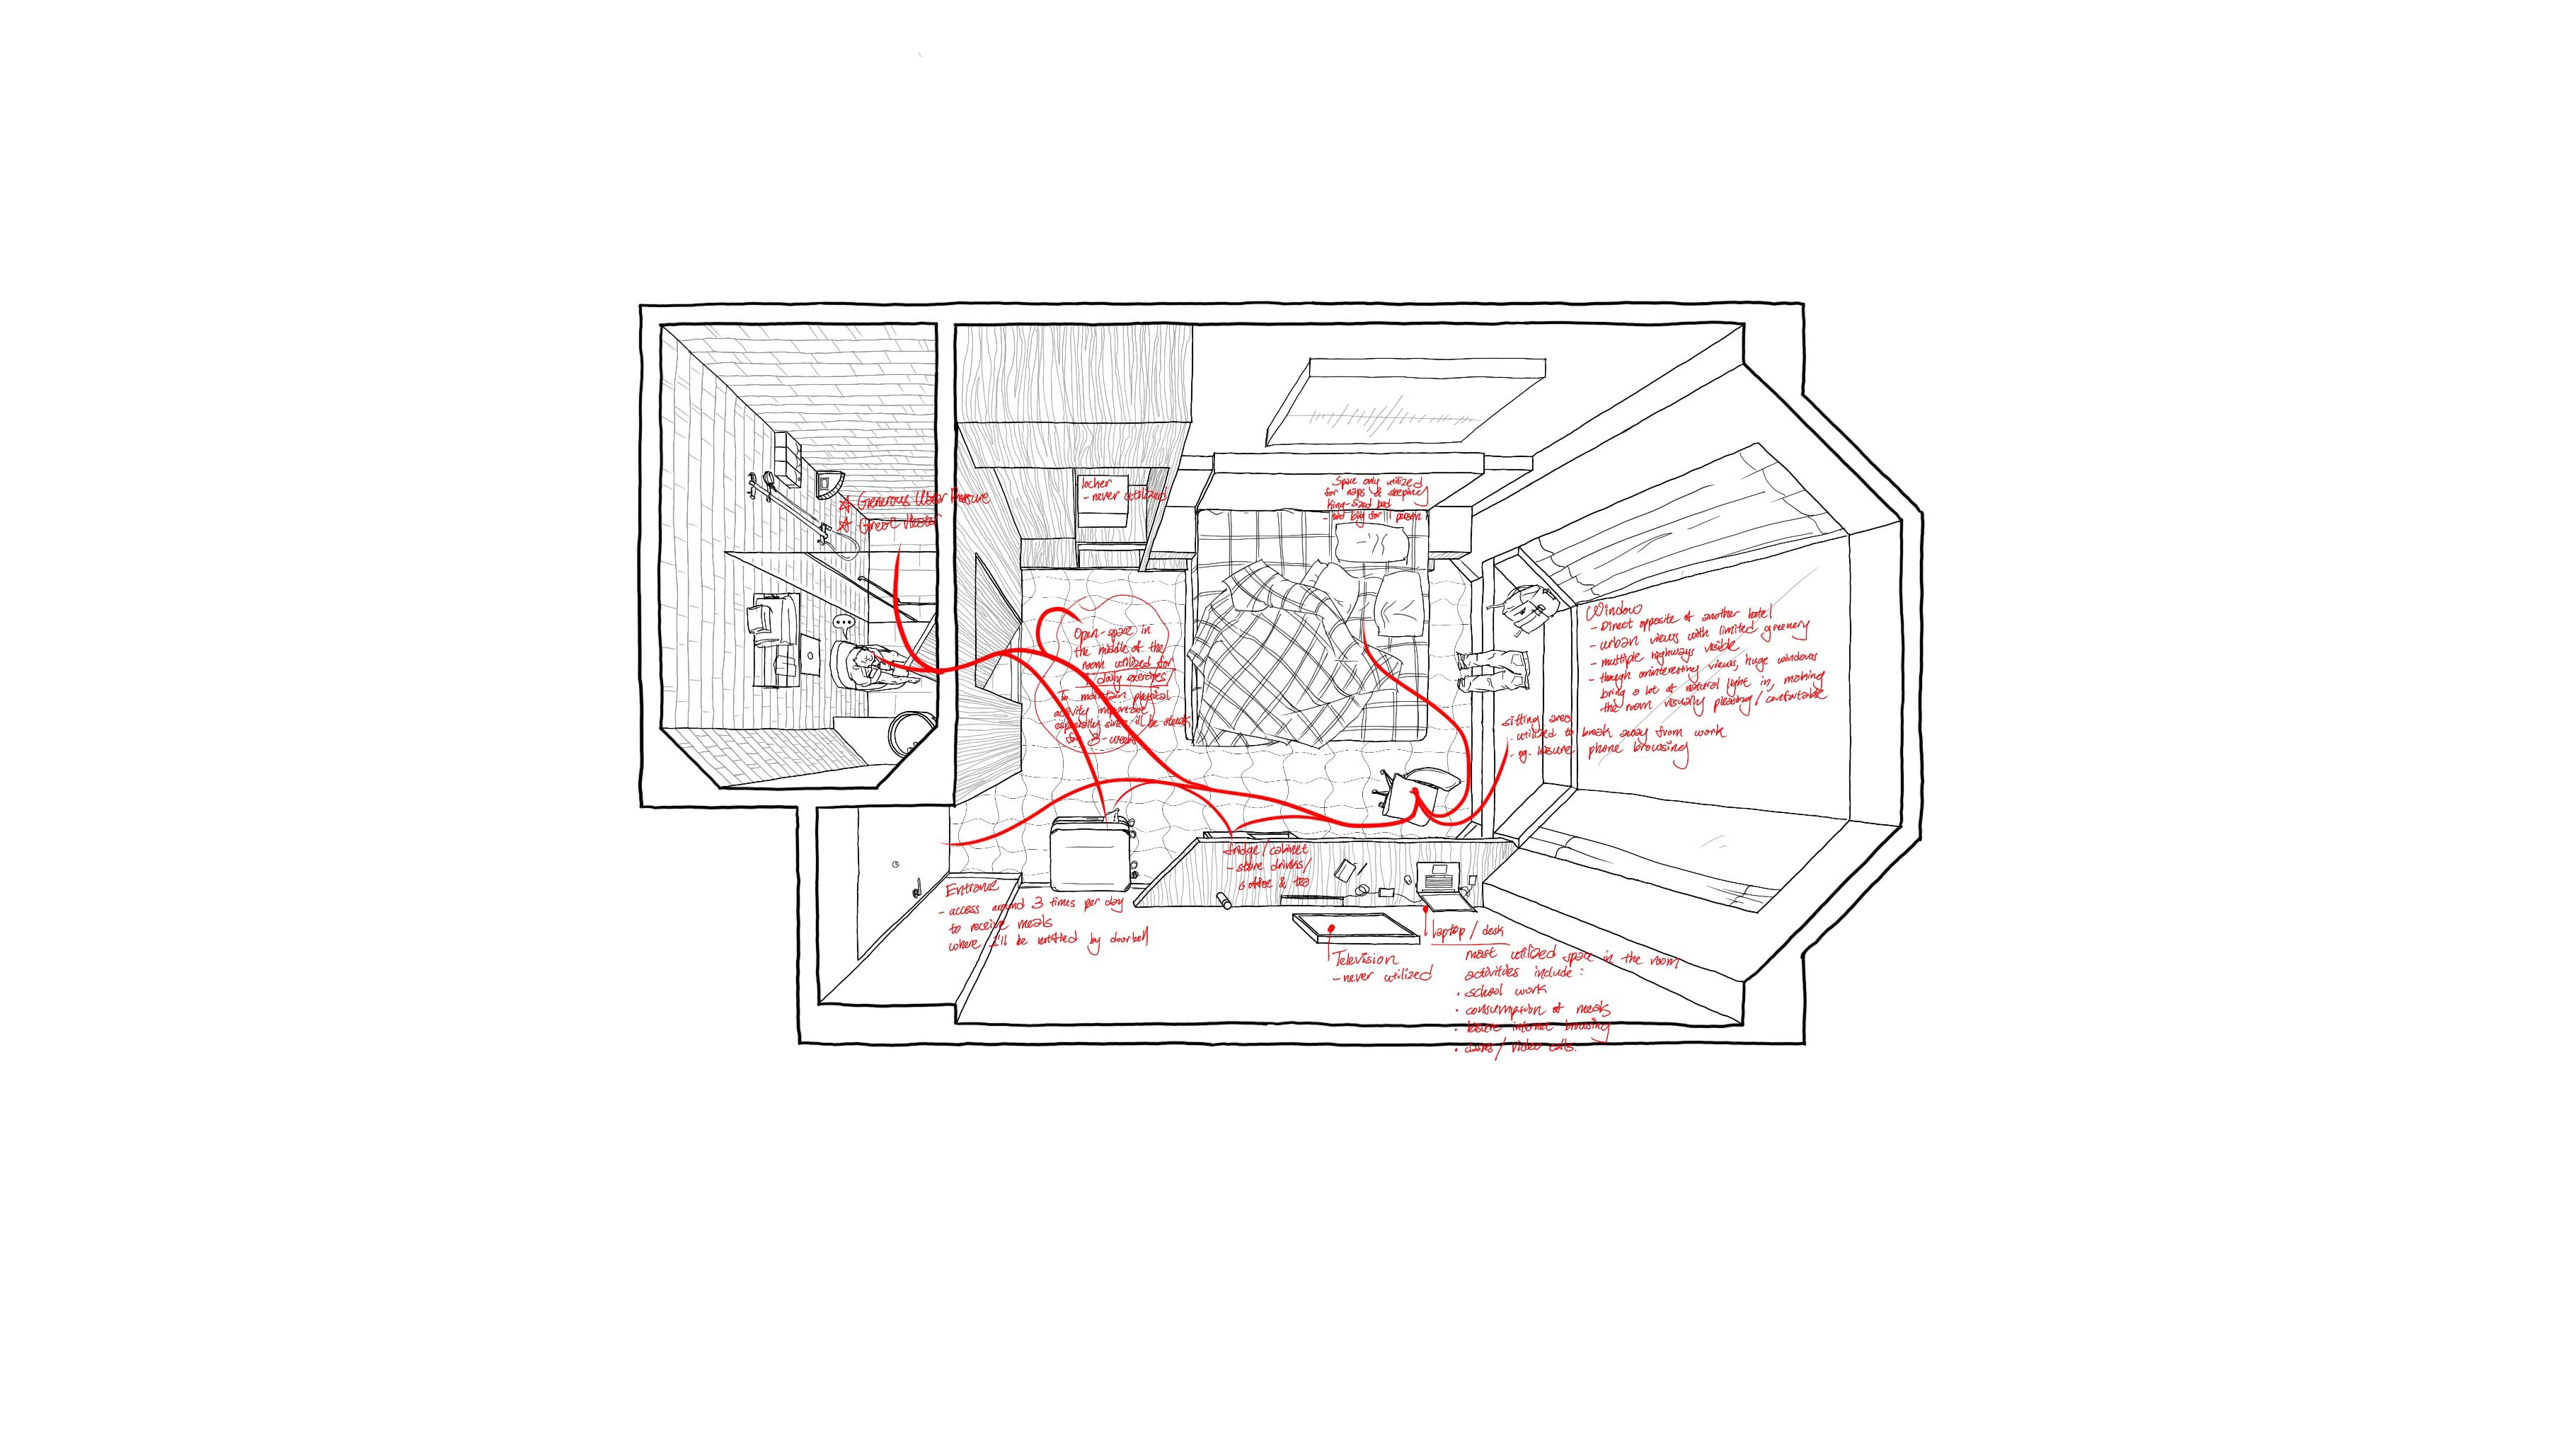 ☆ Generous Water Pressure
☆ Great Heater
locker
- never utilized
Space only utilized
for naps & sleeping
King-sized bed
- too big for 1 person
Open-space in
the middle of the
room utilized for
daily exercises/
To maintain physical
activity important
especially since i'll be stuck
for 3-weeks
Window
- Direct opposite of another hotel
- urban views with limited greenery
- multiple highways visible
- though uninteresting views, huge windows
bring a lot of natural light in, making
the room visually pleasing/comfortable
sitting area
- utilized to break away from work
- eg. leisure phone browsing
fridge/cabinet
- store drinks/
coffee & tea
Entrance
- access around 3 times per day
to receive meals
where I'll be notified by doorbell
Television
- never utilized
laptop / desk
most utilized space in the room
activities include:
· school work
· consumption of meals
· leisure internet browsing
· classes/ video calls.